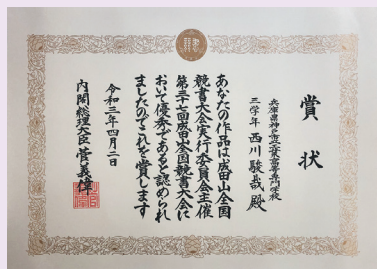 賞状
兵庫県神戸市立工業高等専門学校
三学年 西川駿哉殿
あなたの作品は成田山全国
競書大会実行委員会主催
第三十七回成田山全国競書大会に
おいて優秀であると認められ
ましたのでこれを賞します
令和三年四月二日
内閣総理大臣 菅義偉